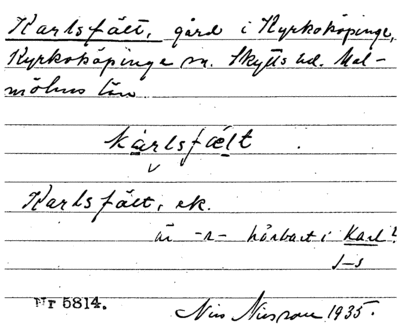 Karlsfält, gård i Kyrkoköpinge,
Kyrkoköpinge sn. Skytts hd. Mal-
möhus län
karlsfælt .
Karlsfält, ek.
är -r- hörbart i Karl?
J-s
Nr 5814.
Nils Nilsson 1935.